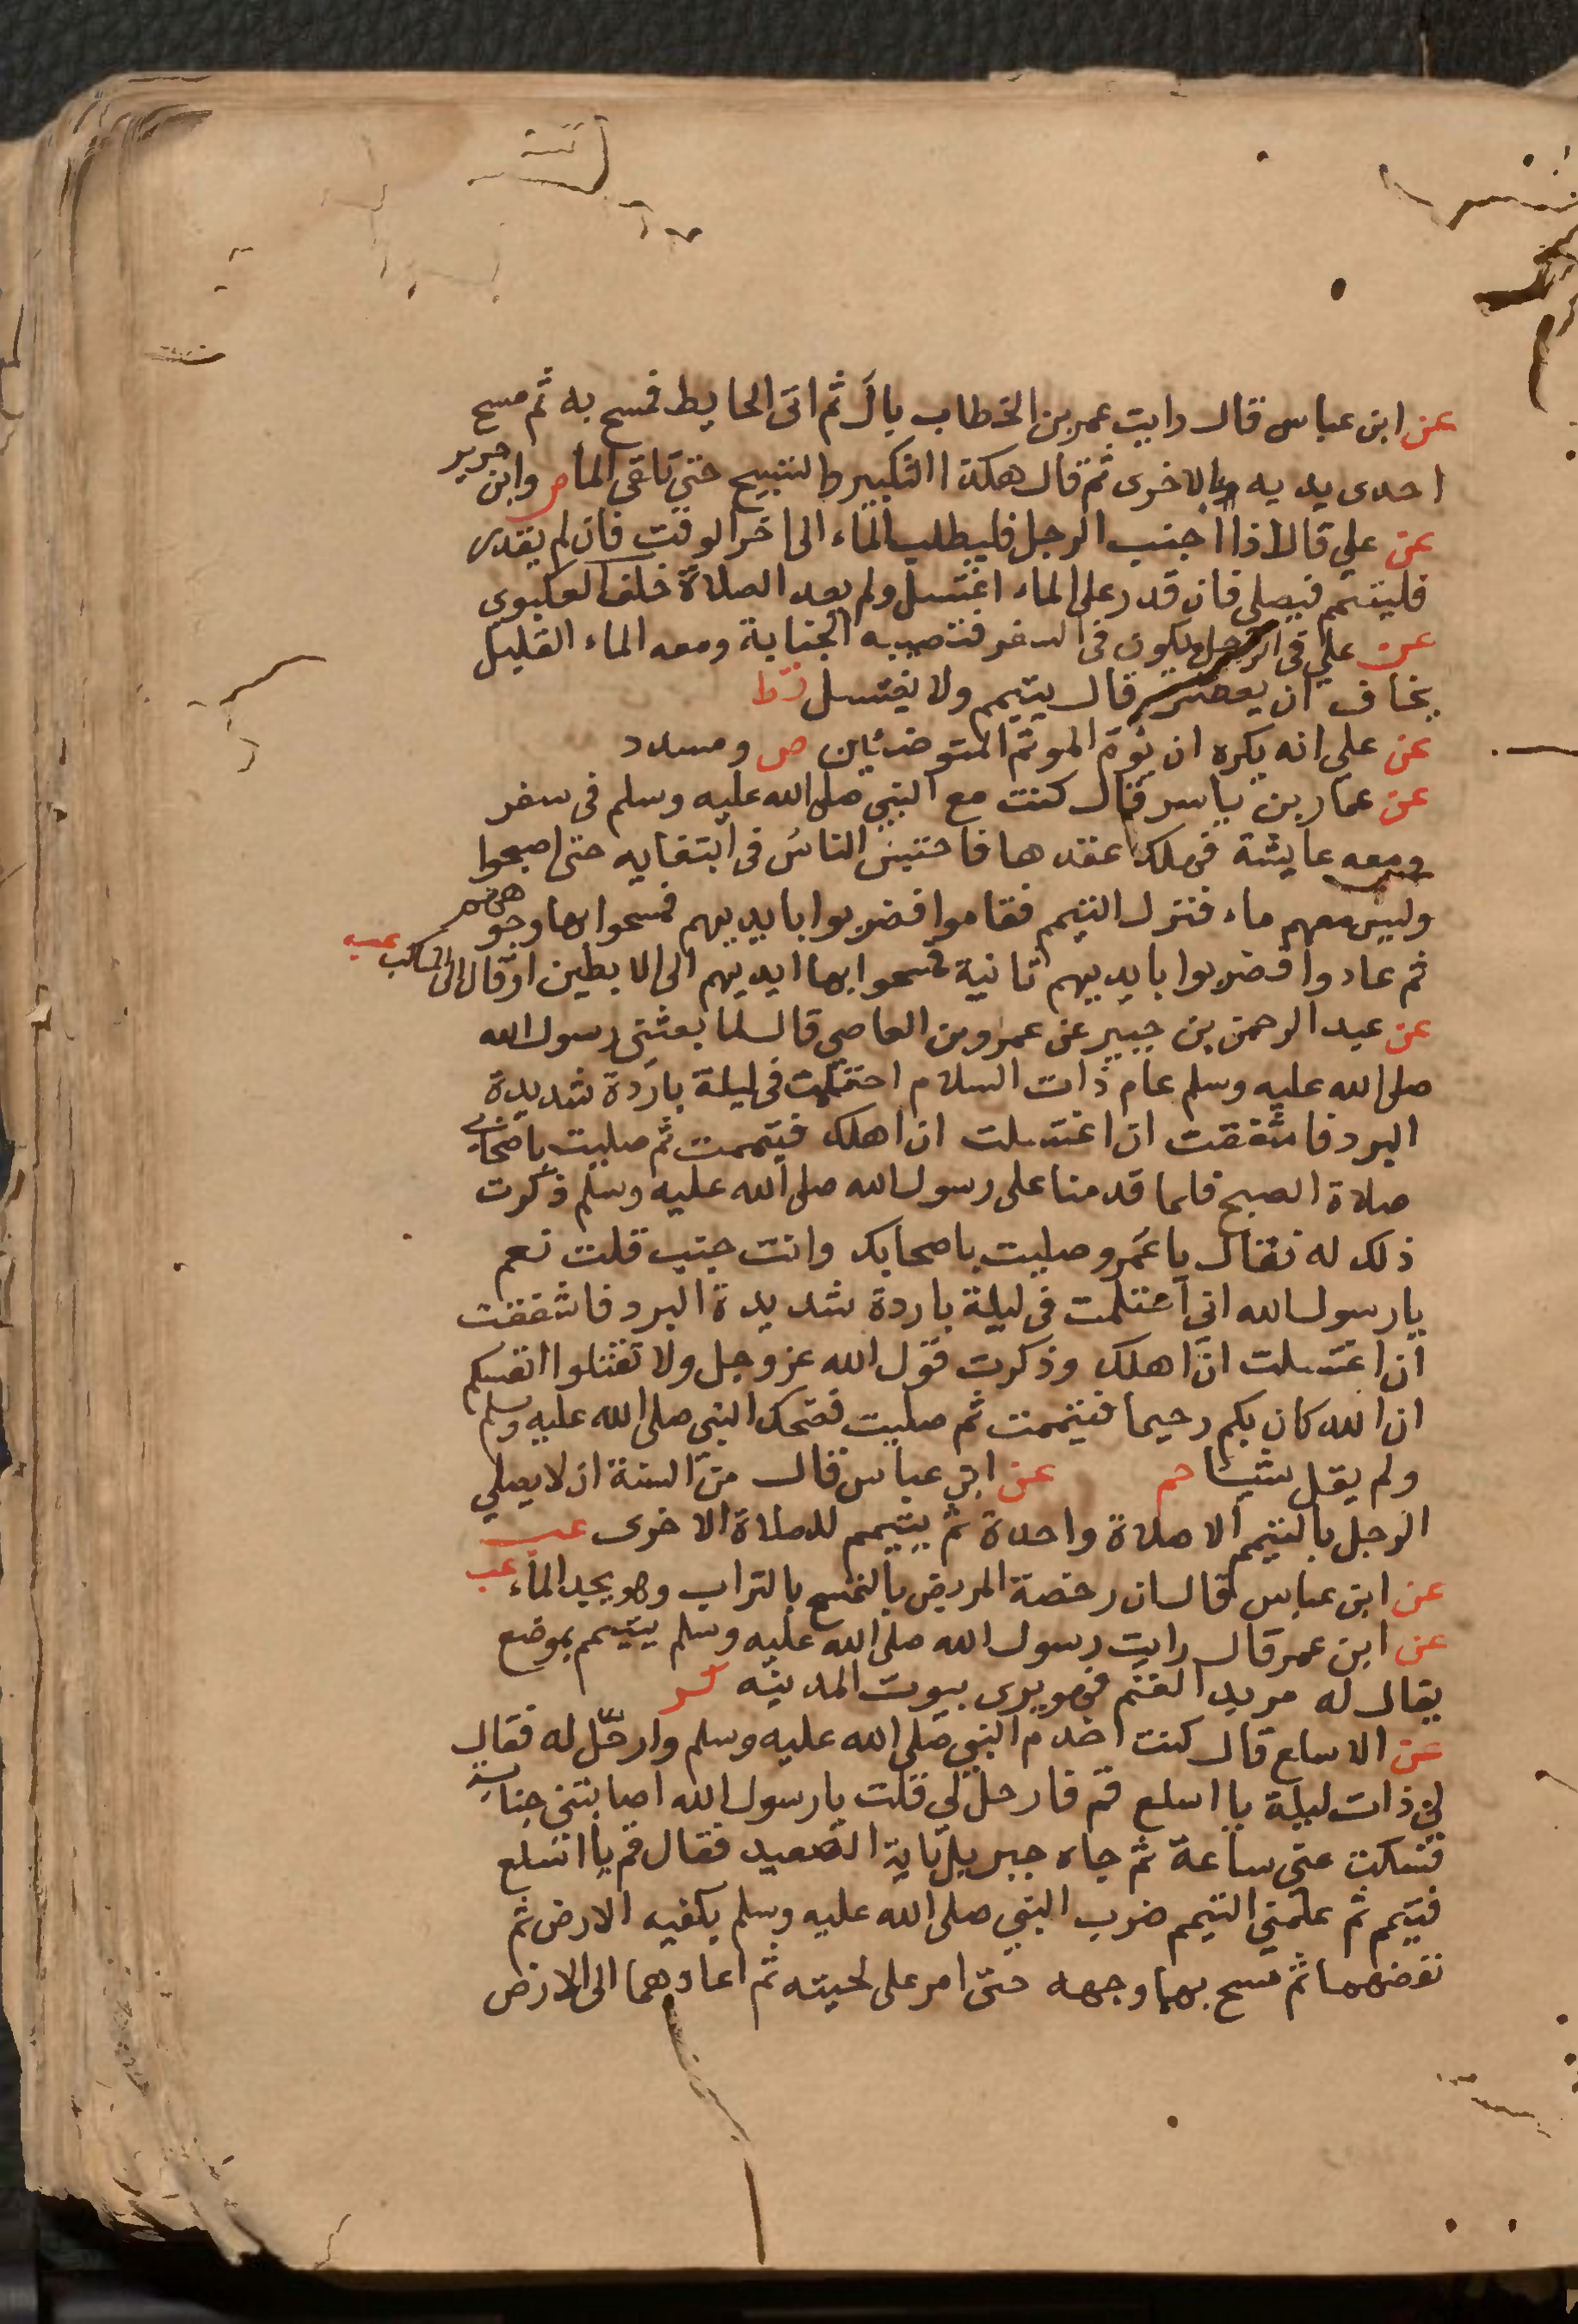 عن ابن عباس قال رايت عمر بن الخطاب بال ثم اتى الحايط فمسح به ثم مسح
احدى يديه بالاخرى ثم قال هكذا التكبير والتسبيح حتى تلقى الما ص وابن جرير
عن علي قال اذا اجنب الرجل فليطلب الماء الى اخر الوقت فان لم يقدر
فليتيمم فيصلي فان قدر على الماء اغتسل ولم يعد الصلاة خلف العكبوى
عن علي فى الرجل يكون فى السفر فتصيبه الجنابة ومعه الماء القليل
يخاف ان يعطش قال يتيمم ولا يغتسل قط
عن على انه يكره ان يؤم المتوضئين ص ومسدد
عن عمار بن ياسر قال كنت مع النبي صلى الله عليه وسلم فى سفر
ومعه عايشة فهلك عقدها فاحتبس الناس فى ابتغايه حتى اصبحوا
وليس معهم ماء فنزل التيمم فقاموا فضربوا بايديهم فمسحوا بها وجوههم
ثم عادوا فضربوا بايديهم ثانية فمسحوا بها ايديهم الى الابطين او قال الى المناكب عب
عن عبد الرحمن بن جبير عن عمرو بن العاصي قال لما بعثني رسول الله
صلى الله عليه وسلم عام ذات السلام احتلمت فى ليلة باردة شديدة
البرد فاشفقت ان اغتسلت ان اهلك فتيممت ثم صليت باصحابي
صلاة الصبح فلما قدمنا على رسول الله صلى الله عليه وسلم ذكرت
ذلك له فقال يا عمرو صليت باصحابك وانت جنب قلت نعم
يارسول الله انى احتلمت فى ليلة باردة شديدة البرد فاشفقت
ان اغتسلت ان اهلك وذكرت قول الله عز وجل ولا تقتلوا انفسكم
ان الله كان بكم رحيما فتيممت ثم صليت فضحك النبى صلى الله عليه وسلم
ولم يقل شيئا حم عن ابن عباس قال من السنة ان لا يصلي
الرجل بالتيمم الا صلاة واحدة ثم يتيمم للصلاة الاخرى عب
عن ابن عباس قال ان رخصة المريض بالتمسح بالتراب وهو يجد الماء عب
عن ابن عمر قال رايت رسول الله صلى الله عليه وسلم يتيمم بموضع
يقال له مربد الغنم فهو يرى بيوت المدينه كر
عن الاسلع قال كنت اخدم النبي صلى الله عليه وسلم وارحل له فقال
لي ذات ليلة يا اسلع قم فارحل لي قلت يارسول الله اصابتني جنابة
فسكت عنى ساعة ثم جاه جبريل باية الصعيد فقال قم يا اسلع
فتيمم ثم علمني التيمم ضرب النبي صلى الله عليه وسلم بكفيه الارض ثم
نفضهما ثم مسح بهما وجهه حتى امر على لحيته ثم اعادهما الى الارض